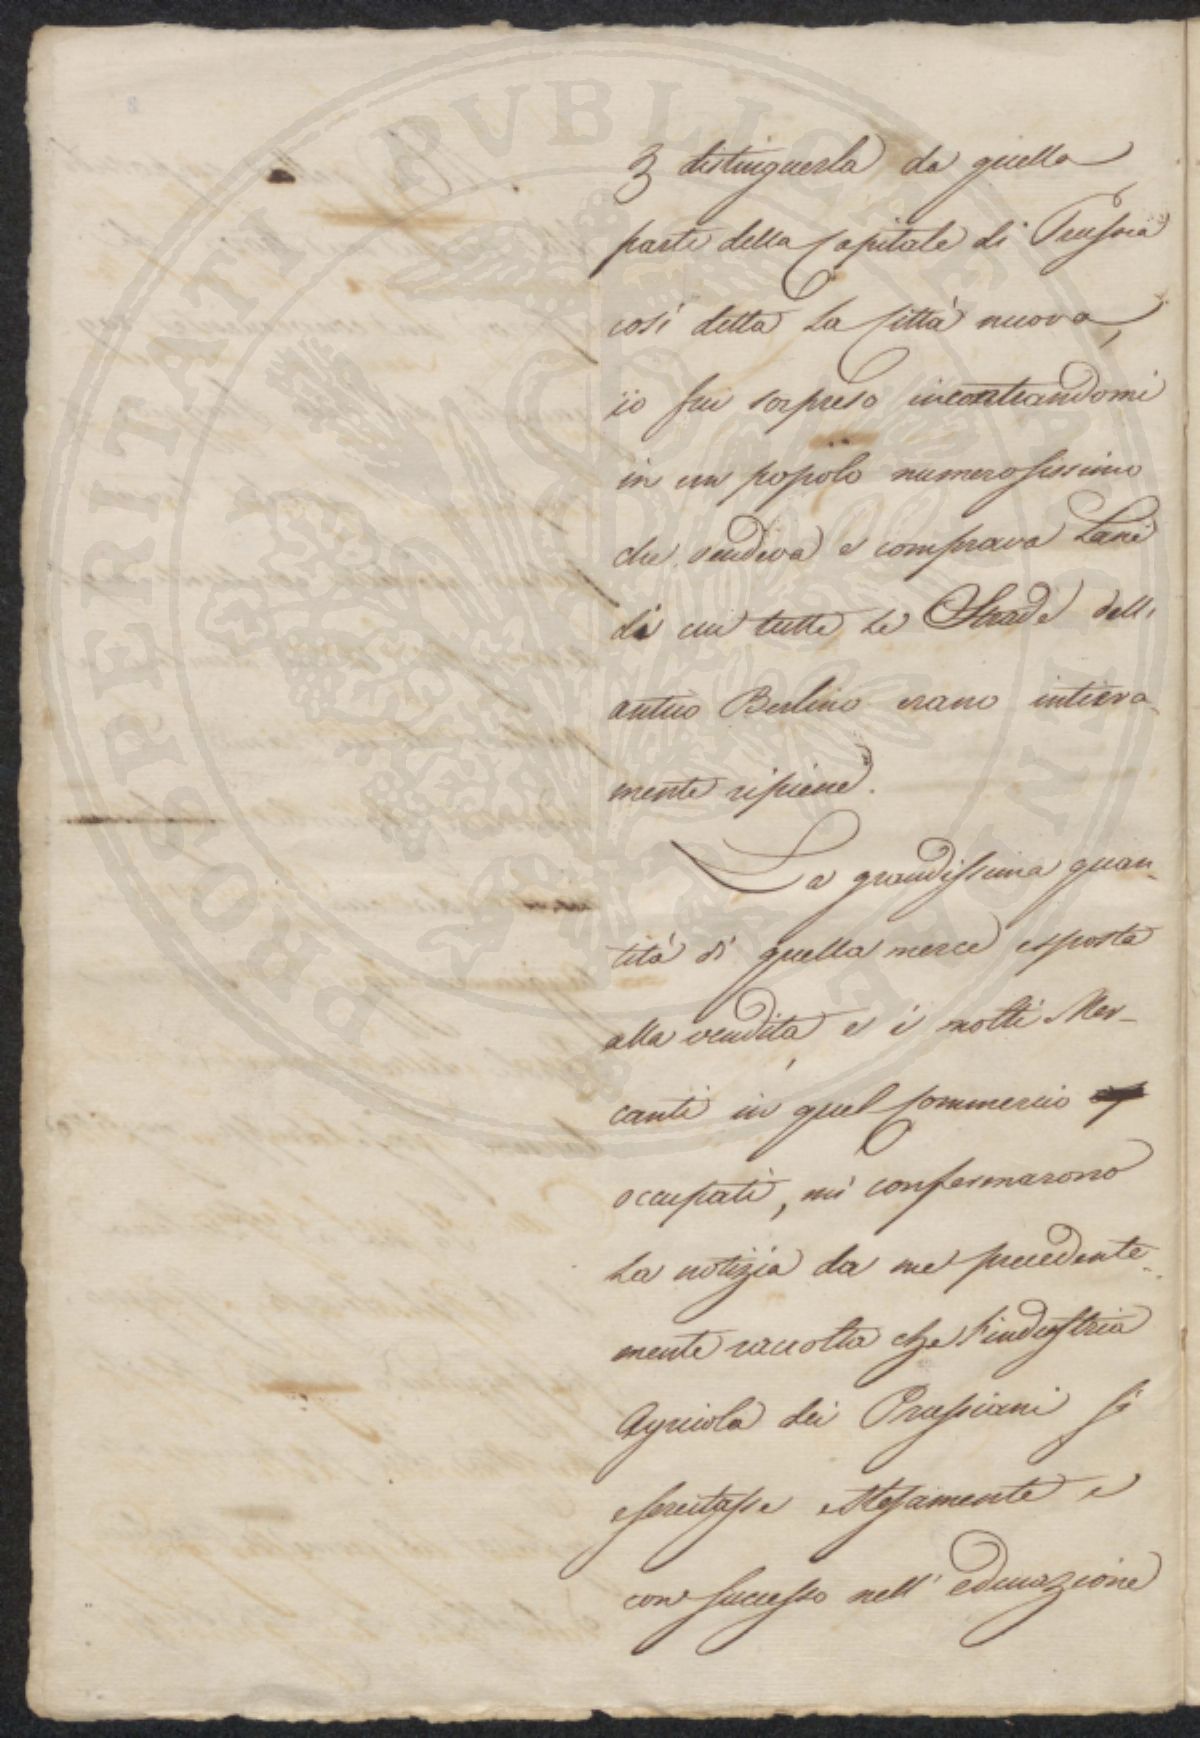 PROSPERITATI PUBLICAE AUGENDAE
3 distinguerla da quella
parte della Capitale di Prussia
così detta La Città nuova,
io fui sorpreso incontrandomi
in un popolo numerosissimo
che vendeva e comprava Lane
di cui tutte Le Strade dell'
antico Berlino erano intiera-
mente ripiene.
La grandissima quan-
tità di quella merce esposta
alla vendita e i molti Mer-
canti in quel Commercio
occupati, mi confermarono
La notizia da me precedente-
mente raccolta che l'industria
Agricola dei Prussiani si
esercitasse estesamente e
con successo nell'educazione